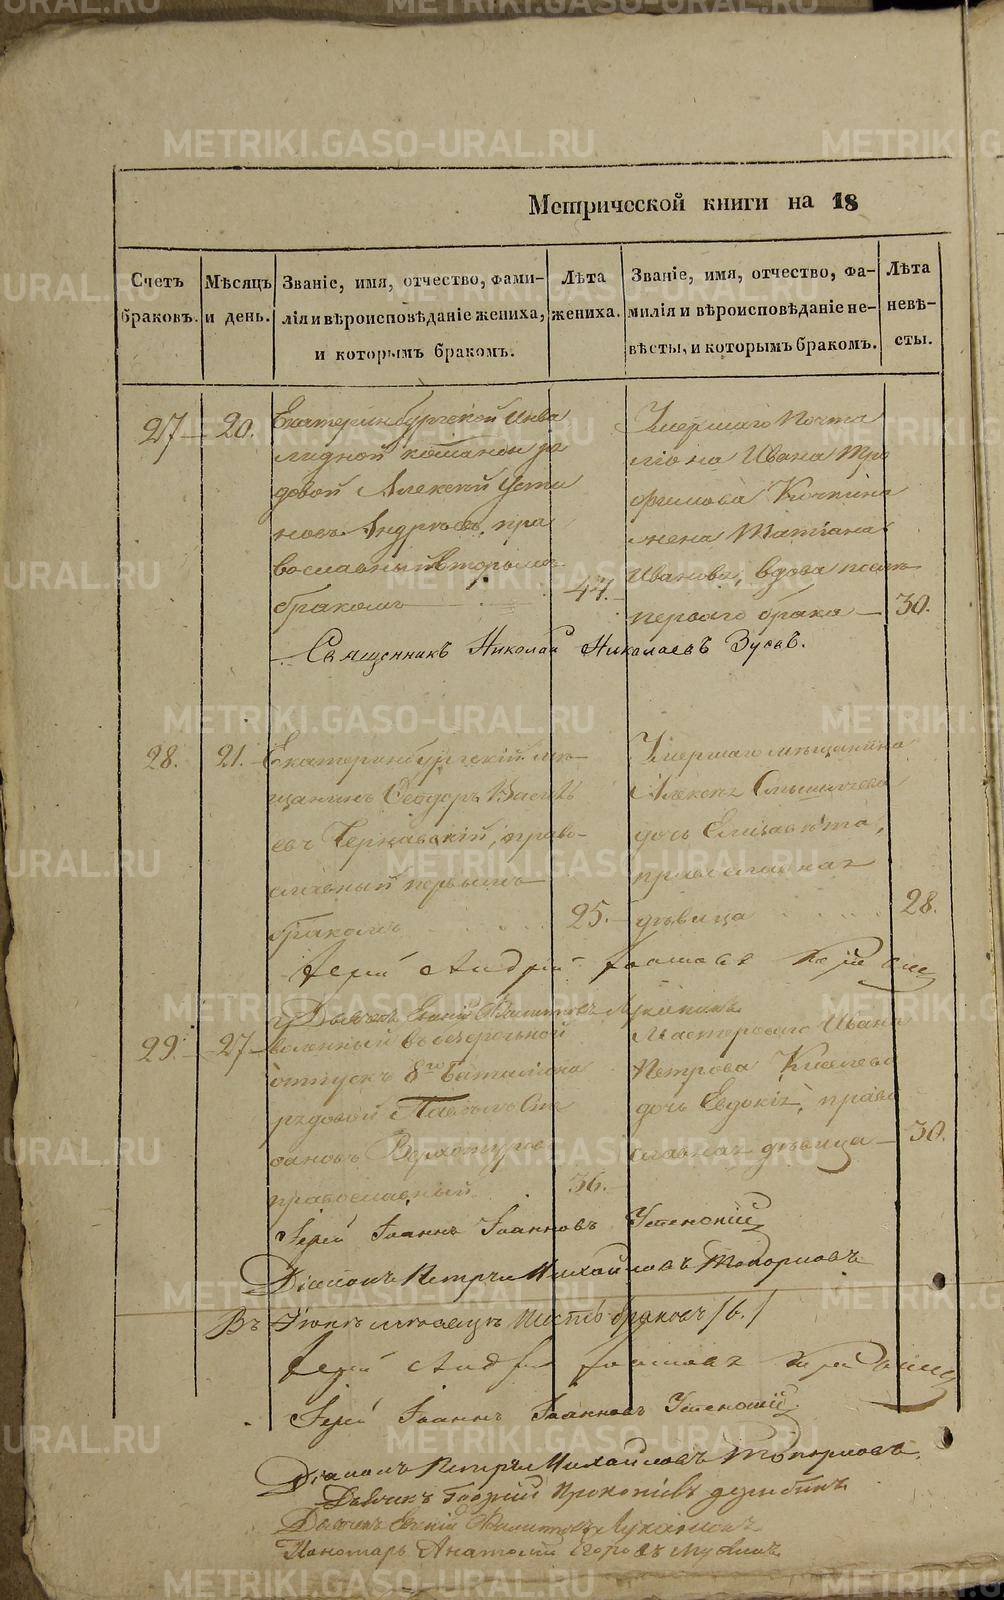 Метрической книги на 18
Счетъ браковъ.
Мѣсяцъ и день.
Званіе, имя, отчество, фами-
лія и вѣроисповѣданіе жениха,
и которымъ бракомъ.
Лѣта жениха.
Званіе, имя, отчество, фа-
милія и вѣроисповѣданіе не-
вѣсты, и которымъ бракомъ.
Лѣта невѣ-
сты.
27
20.
Екатеринбургской Инва
лидной команды ря
довой Алексѣй Усти
новъ Андрѣевъ, пра
вославный вторымъ
бракомъ
47.
Умершаго Почта
ліона Ивана Тро
фимова Кочкина
жена Татіана
Иванова, вдова послѣ
перваго брака
30.
Священникъ Николай Николаевъ Зуевъ.
28.
21.
Екатеринбургскій мѣ-
щанинъ Ѳеодоръ Василь
евъ Чернавскій, право-
славный первымъ
бракомъ
25.
Умершаго мѣщанина
Алексѣя Смышляева
дочь Елизавета,
православная
дѣвица
28.
Іерей Андрей
29.
27
безсрочной
отпускъ 8го баталіона
рядовой Павелъ Сте
пановъ
православный
36.
Мастероваго Ивана
Петрова Киселева
дочь Евдокія, право
славная дѣвица
30.
Іерей Іоаннъ Іоанновъ Успенскій
Діаконъ Петръ Михайловъ Топорковъ
Въ Іюнѣ мѣсяцѣ шесть браковъ /6./
Іерей Андрей
Іерей Іоаннъ Іоанновъ Успенскій
Діаконъ Петръ Михайловъ Топорковъ.
Дьячекъ Георгій Прокопіевъ
Дьячекъ
Пономарь Анатолій Егоровъ
METRIKI.GASO-URAL.RU